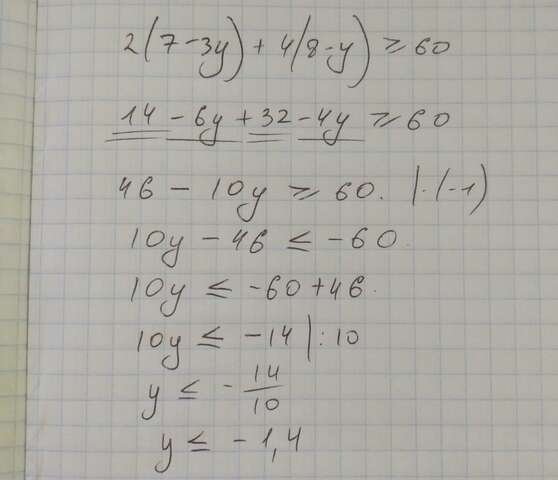 2(7-3y) + 4(8-y) ≥ 60
14 - 6y + 32 - 4y ≥ 60
46 - 10y ≥ 60. |·(-1)
10y - 46 ≤ -60.
10y ≤ -60 + 46.
10y ≤ -14 | : 10
y ≤ - 14/10
y ≤ - 1,4